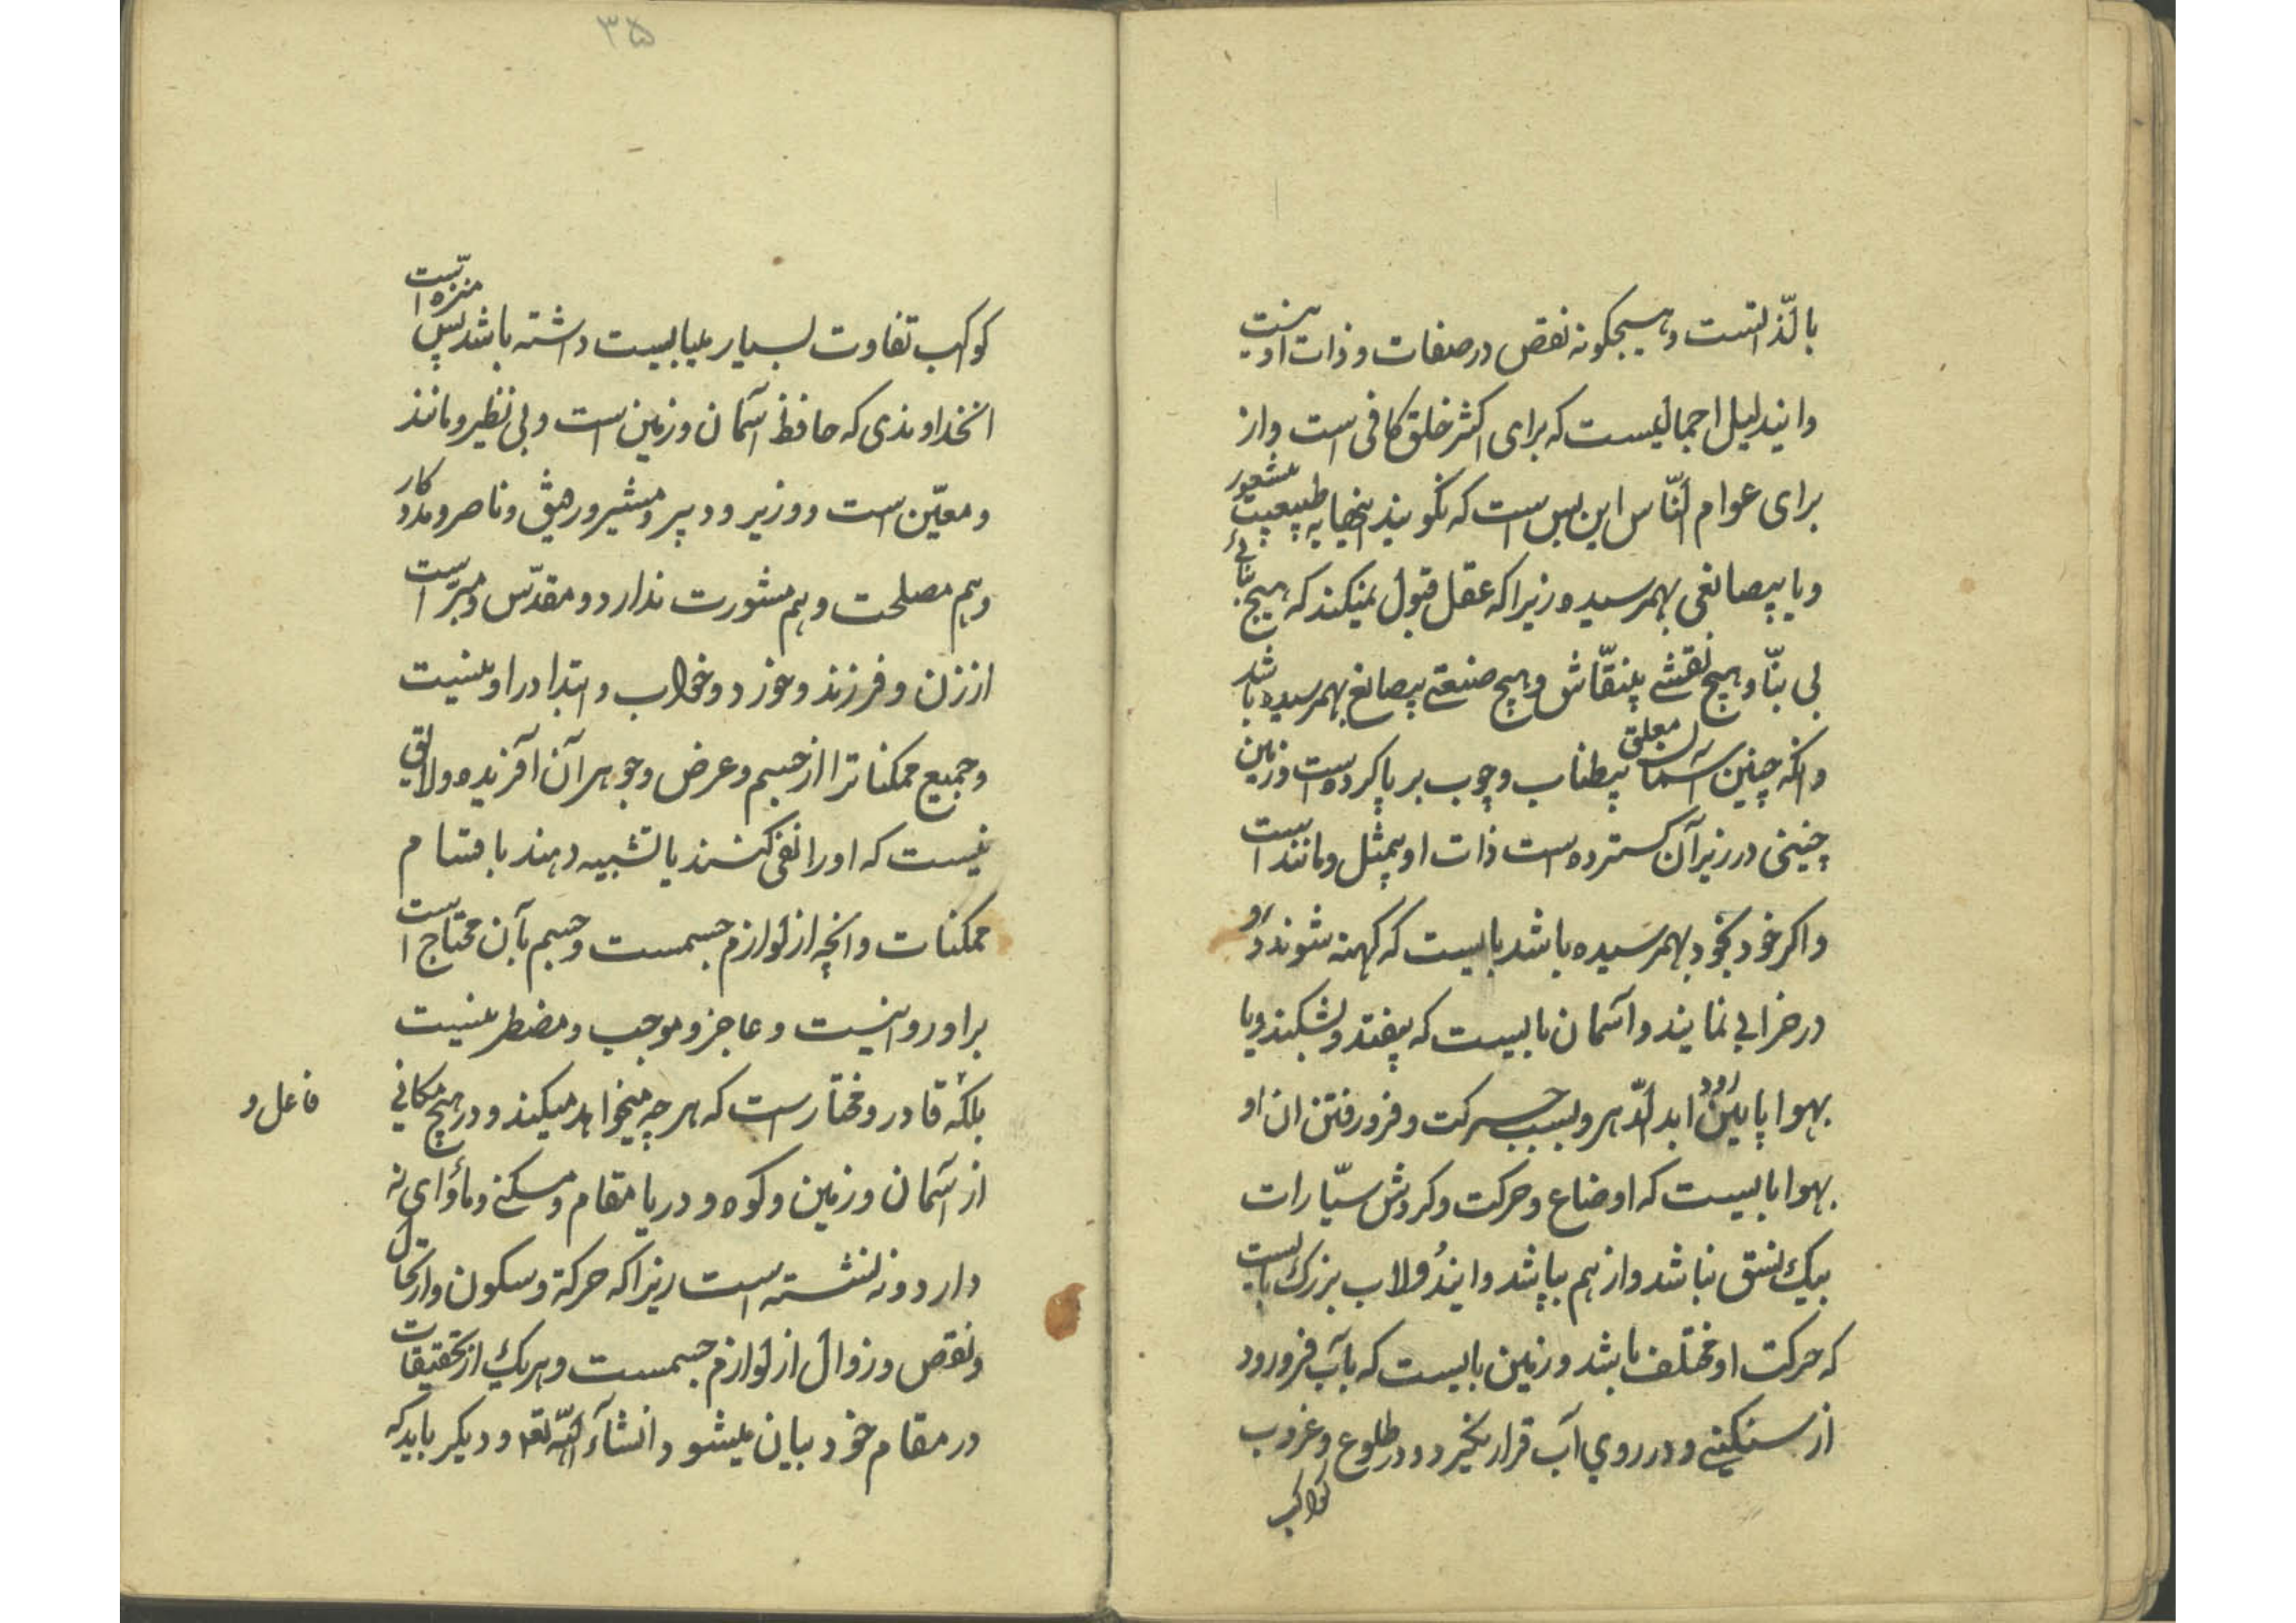 بالذّاتست و هیچگونه نقص در صفات و ذات او نیست
و ایندلیل اجمالیست که برای اکثر خلق کافی است و از
برای عوام النّاس این بس است که نگویند اینها به طبیعت بیشعور
و یا بیصانعی بهمرسیده زیرا که عقل قبول نمیکند که هیچ بنائی
بی بنّا و هیچ نقشی بینقّاش و هیچ صنعتی بیصانع بهمرسیده باشد
و آنکه چنین آسمان معلق بیطناب و چوب بر پا کرده است و زمین
چنینی در زیر آن گسترده است ذات او بیمثل و مانند است
و اگر خود بخود بهمرسیده باشد بایست که کهنه شوند و رو
در خرابی نمایند و آسمان بایست که بیفتد و بشکند و یا
بهوا پایین رود ابد الدّهر و بسبب حرکت و فرو رفتن ان او
بهوا بایست که اوضاع و حرکت و کردش سیّارات
بیک نسق نباشد و از هم بپاشد و ایندُولاب بزرک بایست
که حرکت او مختلف باشد و زمین بایست که بآب فرو رود
از سنکینی و در روی آب قرار نگیرد و در طلوع و غروب
کواکب
۳۵
کواکب تفاوت بسیار میبایست داشته باشد پس منزه است
انخداوندی که حافظ آسمان و زمین است و بی نظیر و مانند
و معیّن است و وزیر و دبیر و مشیر و رفیق و ناصر و مددکار
و هم مصلحت و هم مشورت ندارد و مقدّس و مبرّاست
از زن و فرزند و خورد و خواب و ابتدا در او نیست
و جمیع ممکناترا از جسم و عرض و جوهر آن آفریده و لایق
نیست که او را نفی کنند یا تشبیه دهند باقسام
ممکنات و انچه از لوازم جسمست و جسم بآن محتاج است
بر او روا نیست و عاجز و موجب و مضطر نیست
بلکه قادر و مختار است که هر چه میخواهد میکند و در هیچ مکانی
فاعل و
از آسمان و زمین و کوه و دریا مقام و مسکنی و مأوای نه
دارد و نه نشسته است زیرا که حرکة و سکون و ارتحال
و نقص و زوال از لوازم جسمست و هر یک از تحقیقات
در مقام خود بیان میشود انشآء اللّه تعه و دیکر باید که